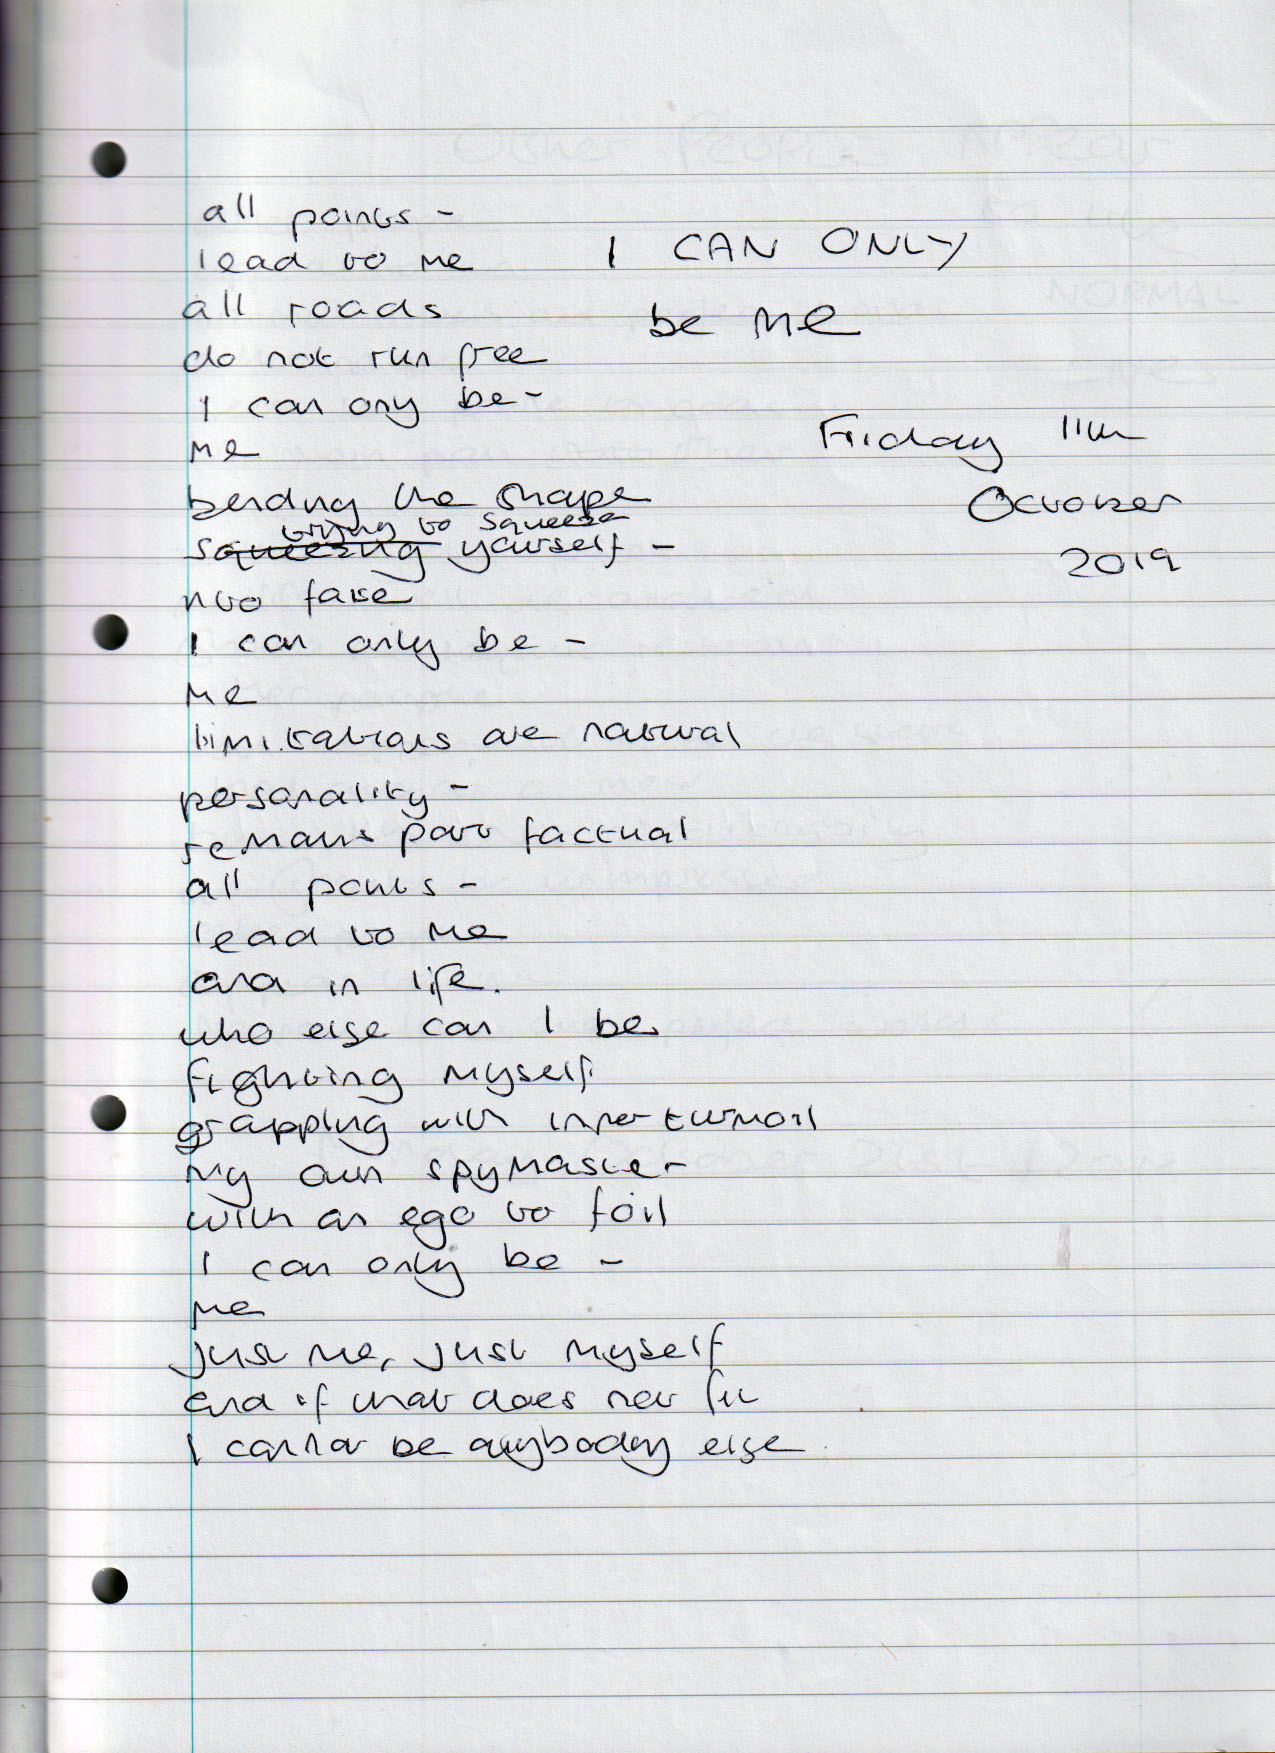 I CAN ONLY
be me
Friday 11th
October
2019
all points -
lead to me
all roads
do not run free
I can ony be -
me
bending the shape
trying to squeeze
squeezing yourself -
into false
I can only be -
me
limitations are natural
personality -
remains part factual
all points -
lead to me
and in life.
who else can I be
fighting myself
grappling with inner turmoil
my own spymaster
with an ego to foil
I can only be -
me
just me, just myself
and if that does not fit
I cannot be anybody else